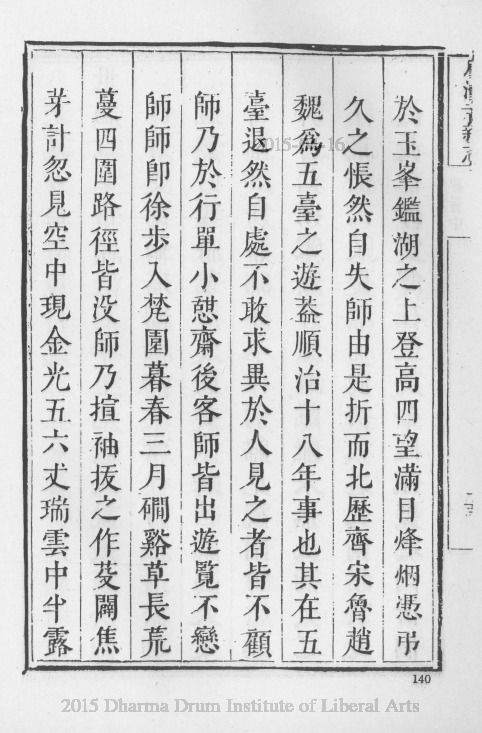 於玉峯鑑湖之上登高四望滿目烽烟憑弔
久之悵然自失師由是折而北歷齊宋魯趙
魏爲五臺之遊葢順治十八年事也其在五
臺退然自處不敢求異於人見之者皆不顧
師乃於行單小憇齋後客師皆出遊覽不戀
師師卽徐步入梵園暮春三月磵谿草長荒
蔓四圍路徑皆没師乃揎袖拔之作芟闢焦
芽計忽見空中現金光五六丈瑞雲中半露
140
2015 Dharma Drum Institute of Liberal Arts